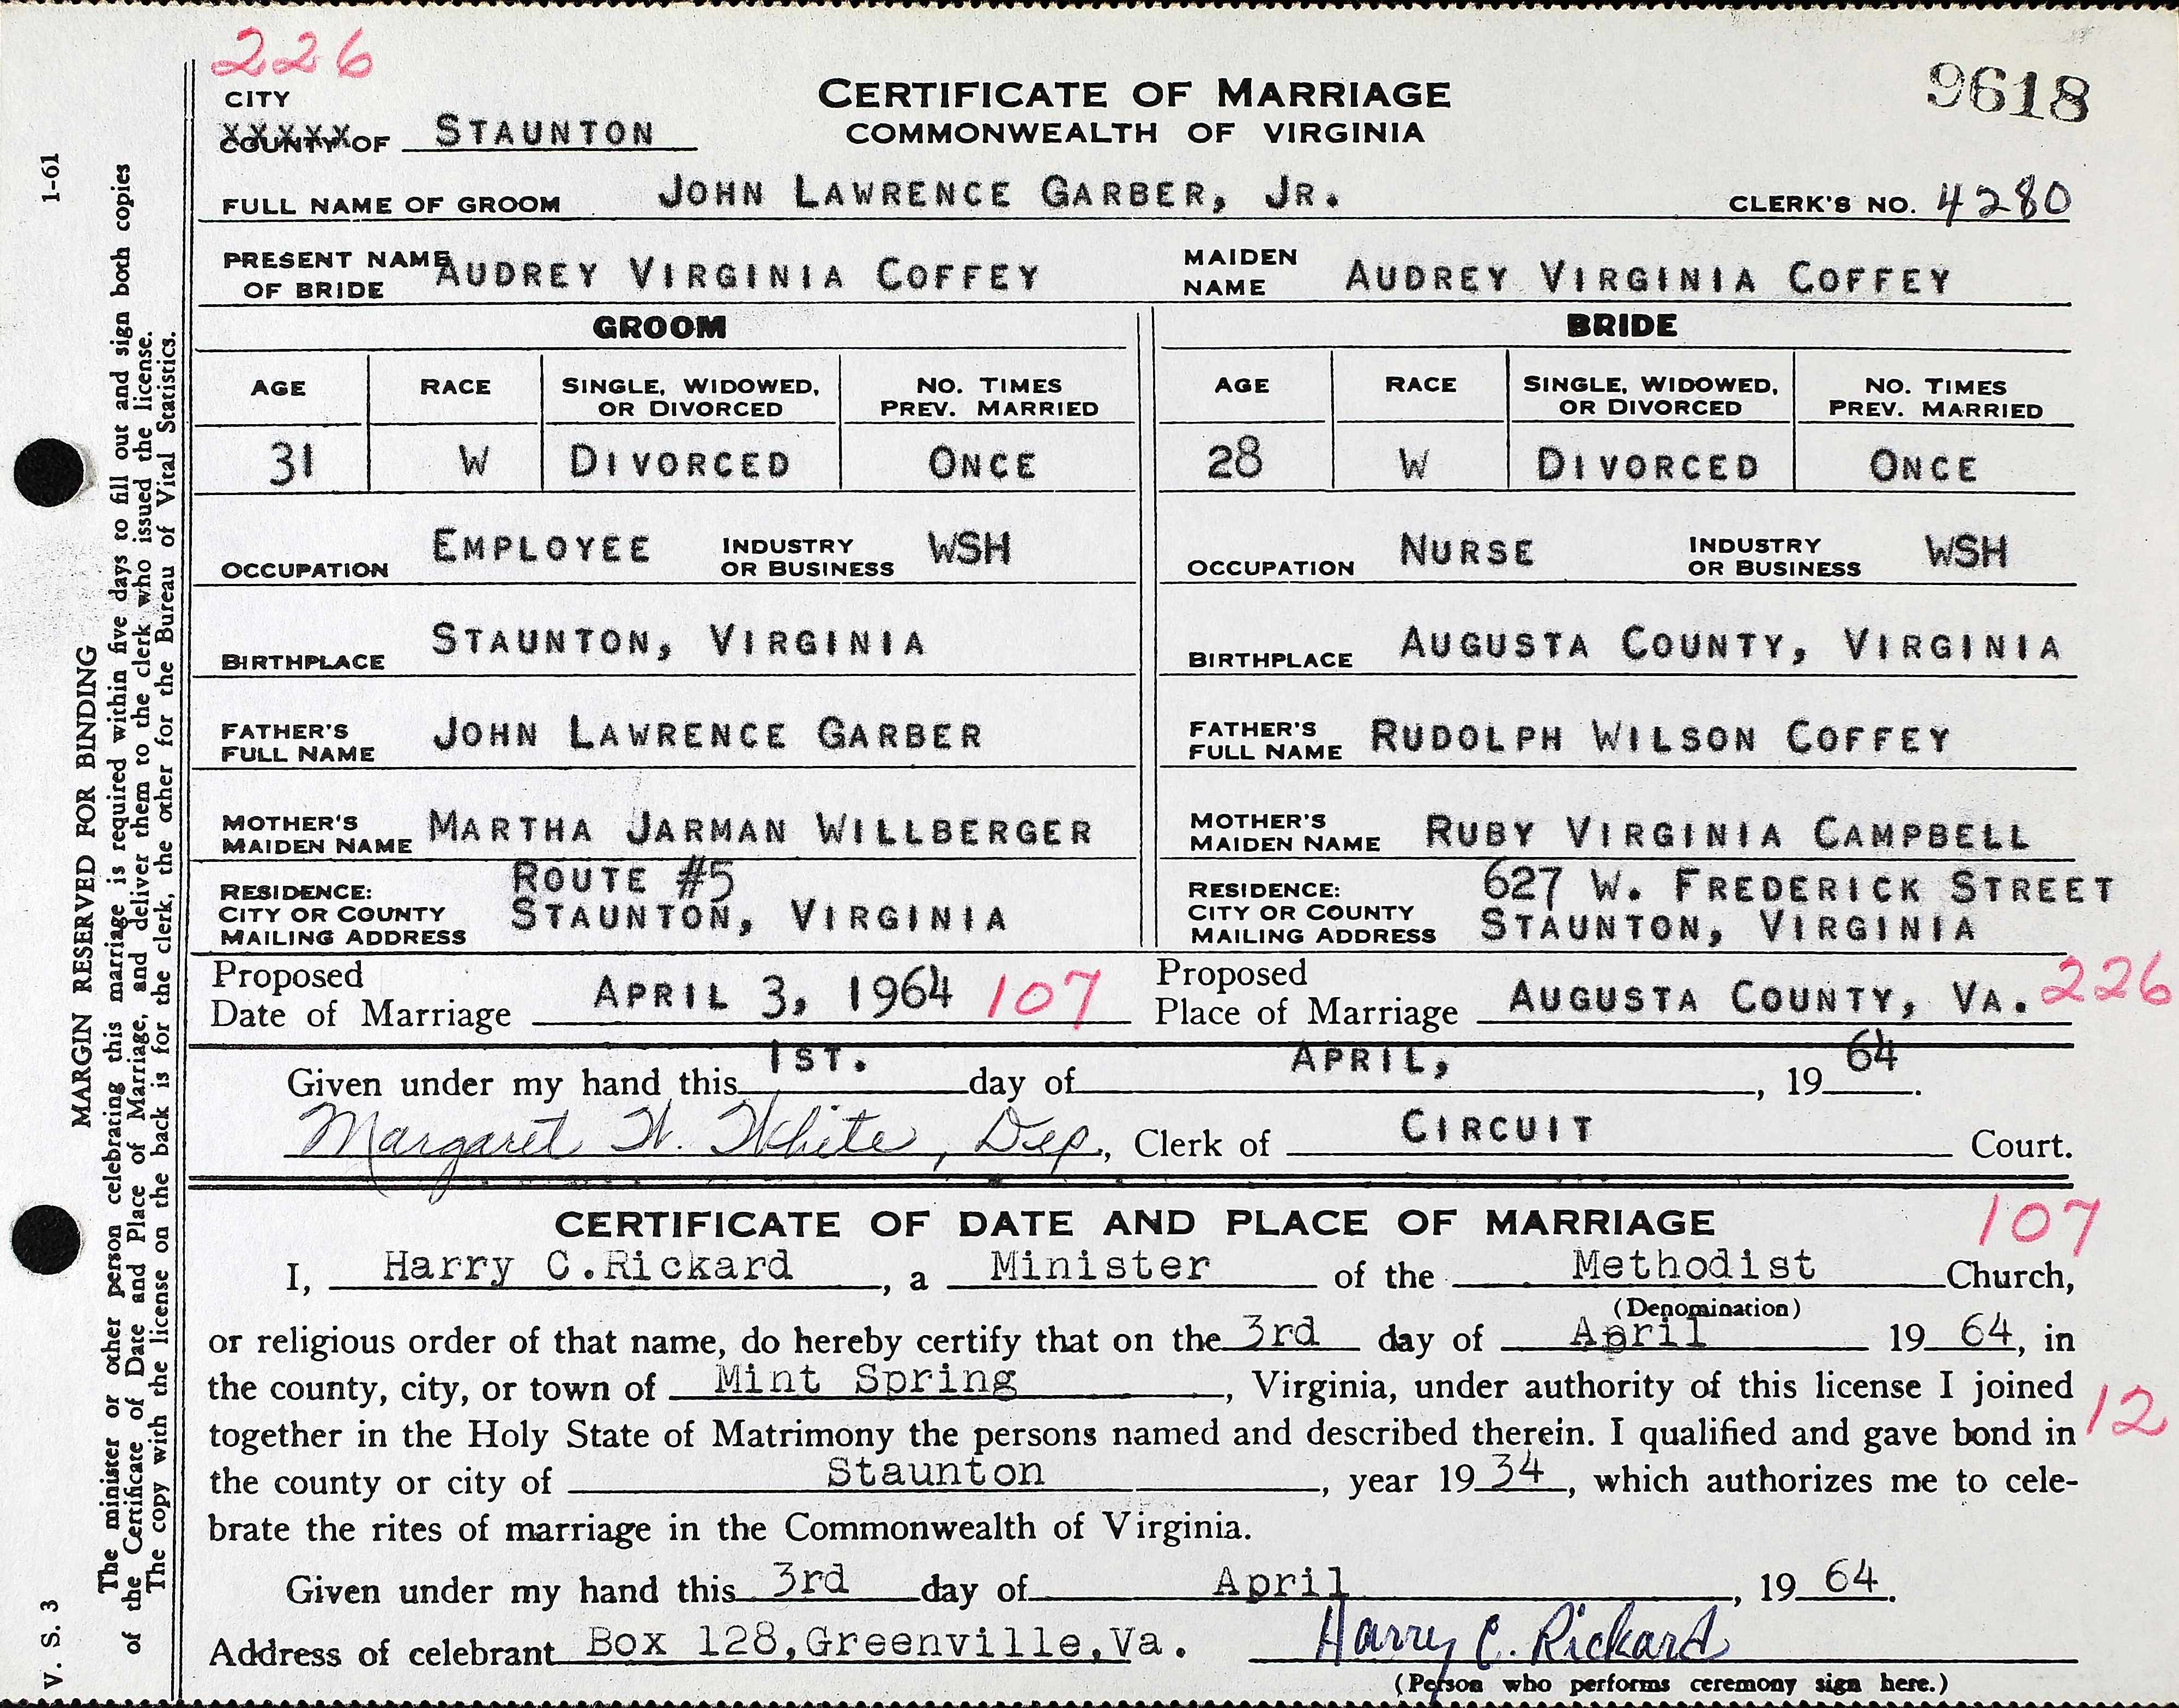 226
CERTIFICATE OF MARRIAGE
COMMONWEALTH OF VIRGINIA
9618
CITY
XXXXX
COUNTY OF STAUNTON
FULL NAME OF GROOM JOHN LAWRENCE GARBER, JR. CLERK'S NO. 4280
PRESENT NAME OF BRIDE AUDREY VIRGINIA COFFEY MAIDEN NAME AUDREY VIRGINIA COFFEY
GROOM BRIDE
AGE RACE SINGLE, WIDOWED, OR DIVORCED NO. TIMES PREV. MARRIED AGE RACE SINGLE, WIDOWED, OR DIVORCED NO. TIMES PREV. MARRIED
31 W DIVORCED ONCE 28 W DIVORCED ONCE
OCCUPATION EMPLOYEE INDUSTRY OR BUSINESS WSH OCCUPATION NURSE INDUSTRY OR BUSINESS WSH
BIRTHPLACE STAUNTON, VIRGINIA BIRTHPLACE AUGUSTA COUNTY, VIRGINIA
FATHER'S FULL NAME JOHN LAWRENCE GARBER FATHER'S FULL NAME RUDOLPH WILSON COFFEY
MOTHER'S MAIDEN NAME MARTHA JARMAN WILLBERGER MOTHER'S MAIDEN NAME RUBY VIRGINIA CAMPBELL
RESIDENCE: CITY OR COUNTY MAILING ADDRESS ROUTE #5 STAUNTON, VIRGINIA RESIDENCE: CITY OR COUNTY MAILING ADDRESS 627 W. FREDERICK STREET STAUNTON, VIRGINIA
Proposed Date of Marriage APRIL 3, 1964 107 Proposed Place of Marriage AUGUSTA COUNTY, VA. 226
Given under my hand this 1ST. day of APRIL, , 19 64.
Margaret W. White, Dep., Clerk of CIRCUIT Court.
CERTIFICATE OF DATE AND PLACE OF MARRIAGE 107
I, Harry C.Rickard, a Minister of the Methodist Church,
(Denomination)
or religious order of that name, do hereby certify that on the 3rd day of April 19 64, in
the county, city, or town of Mint Spring, Virginia, under authority of this license I joined 12
together in the Holy State of Matrimony the persons named and described therein. I qualified and gave bond in
the county or city of Staunton, year 19 34, which authorizes me to cele-
brate the rites of marriage in the Commonwealth of Virginia.
Given under my hand this 3rd day of April, 19 64.
Address of celebrant Box 128,Greenville,Va. Harry C. Rickard
(Person who performs ceremony sign here.)
V. S. 3 1-61
MARGIN RESERVED FOR BINDING
The minister or other person celebrating this marriage is required within five days to fill out and sign both copies
of the Certificate of Date and Place of Marriage, and deliver them to the clerk who issued the license.
The copy with the license on the back is for the clerk, the other for the Bureau of Vital Statistics.